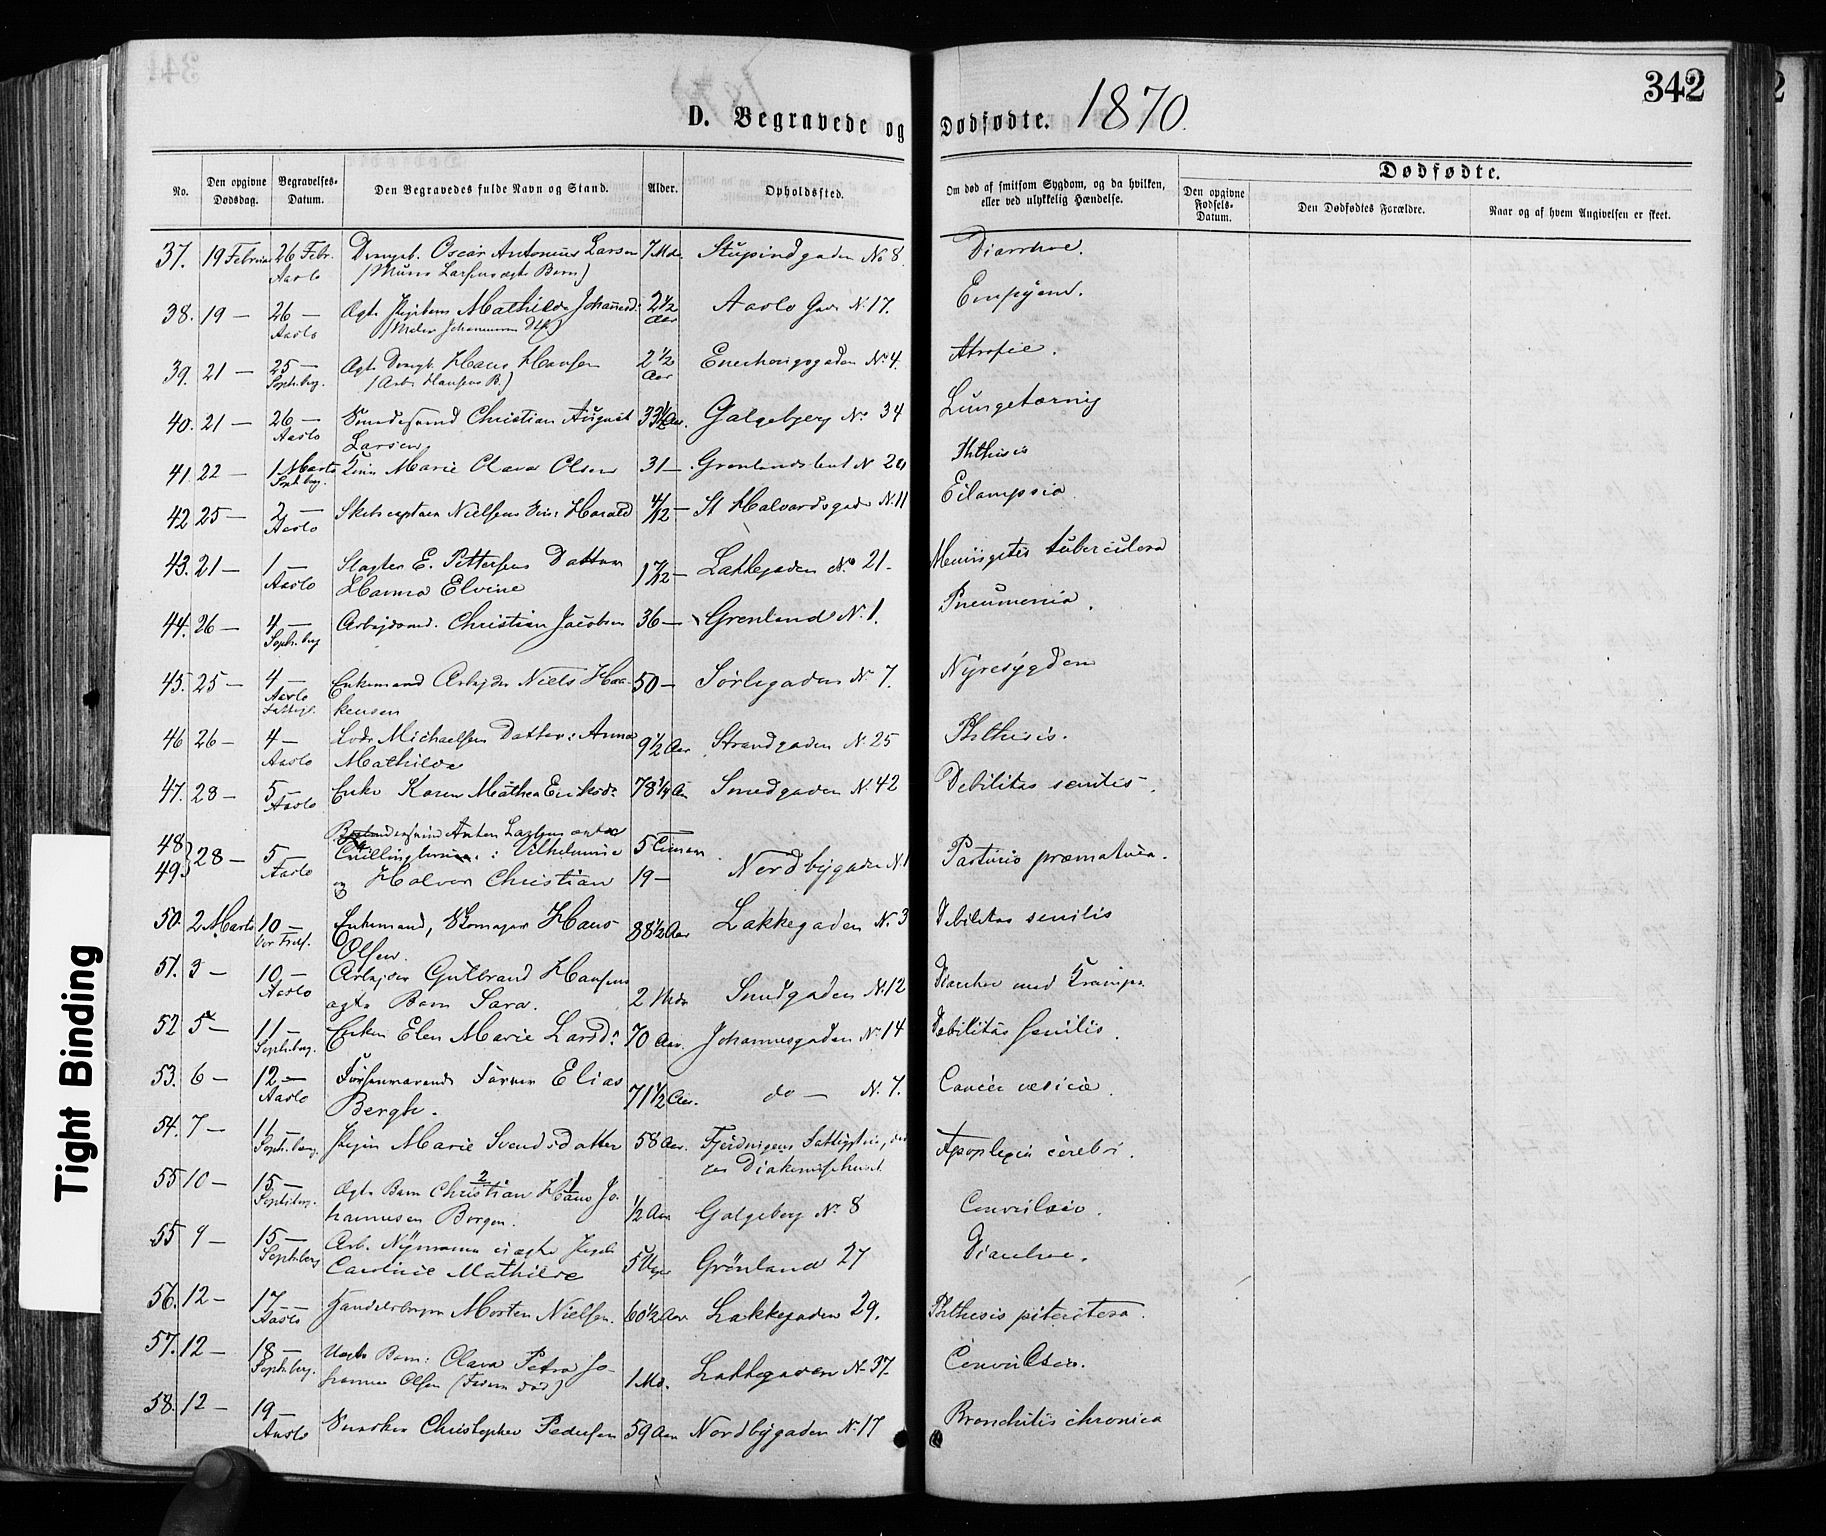 342
D. Begravede og Dødfødte. 1870.
No. Den opgivne Dødsdag. Begravelses-Datum. Den Begravedes fulde Navn og Stand. Alder. Opholdssted. Om død af smitsom Sygdom, og da hvilken, eller ved ulykkelig Hændelse.
Dødfødte.
Den opgivne Fødsels-Datum. Den Dødfødtes Forældre. Naar og af hvem Angivelsen er skeet.
37. 19 Februar 26 Febr. Drengeb. Oscar Antonius Larsen 7 Mdr. Stupindgaden No 8. Diarrhoe.
Aaslo (Murer Larsens ægte Barn)
38. 19 — 26 — Ægte Pigebarn Mathilde Johannesd: 2 1/2 Aar Aaslo Gade N. 17. Empyem.
Aaslo
39. 21 — 25 — Ægte Drengb. Hans Hansen 2 1/2 Aar Enerhougsgaden No 4. Atrofie.
Sophibg. (Arb. Hansens B.)
40. 21 — 26 — Christian August 33 1/2 Aar. Galgebjerg No 34 Lungetæring
Aaslo Larsen.
41. 22 — 1 Marts Marie Olava Olsen 31 — Grønlandsleret N 20 Phthisis
Sophbg.
42 25 — 2 — Nielsens Søn: Harald 4/12 — St Halvardsgade N. 11 Eclampsia.
Aaslo
43. 21 — 1 — Slagter E. Pettersens Datter 1 7/12 — Lakkegaden No 21. Meningitis tuberculosa
Aaslo Hanna Elvine
44. 26 — 4 — Arbejdsmd. Christian Jacobsen 36 — Grønland N. 1. Pneumonia.
Sophibg
45. 25 — 4 — Enkemand Arbejder Niels Haa- 50 — Sørligaden No 7. Nyresygdom
Aaslo kensen
46 26 — 4 — Michaelsens Datter: Anna 9 1/2 Aar Strandgaden N. 25 Phthisis.
Aaslo Mathilde
47. 28 — 5 — Enke Karen Mathea Eriksd: 78 1/4 Aar Smedgaden N. 42 Debilitas senilis.
Aaslo
48 Anton Larsens ægte
49 28 — 5 — Tvillingbørn: Vilhelmine 5 Timer Nordbygaden N. 1 Partus præmatura.
Aaslo og Halvor Christian 19 —
50. 2 Marts 10 — Enkemand, Skomager Hans 88 1/2 Aar Lakkegaden N. 3 Debilitas senilis
Vor Frels. Olsen.
51. 3 — 10 — Arbejder Gulbrand Hansens Smedgaden N. 12 Diarrhoe med Krampe.
Aaslo ægte Barn Sara. 2 Mdr
52 5 — 11 — Enken Elen Marie Larsd: 70 Aar. Johannesgaden No 14 Debilitas senilis.
Sophibg.
53. 6 — 12 — Elias 71 1/2 Aar. do — N. 7. Cancer vesicæ
Aaslo Bergh.
54. 7 — 11 — Pigen Marie Svendsdatter 58 Aar. Apoplexia cerebri.
Sophibg. Diakonisehuset
55 10 — 15 — Ægte Barn Christian Hans Jo- 1/2 Aar Galgeberg No 8 Convulsio.
Sophibg. hannesen Borgen.
55 9 — 15 — Arb. Nymanns uægte Pigeb. 5 Uger Grönland 27 Diarrhoe.
Sophibg Caroline Mathilde
56. 12 — 17 — Handelsborger Morten Nielsen. 60 1/2 Aar Lakkegaden 29. Phthisis
Aaslo
57. 12 — 18 — Uægte Barn: Olava Petra Jo- 1 Md. Lakkegaden N. 37. Convulsio.
Sophibg. hanne Olsen (Faderen død)
58. 12 — 19 — Snedker Christopher Pedersen 59 Aar Nordbygaden N. 17 Bronchitis chronica
Aaslo
Tight Binding